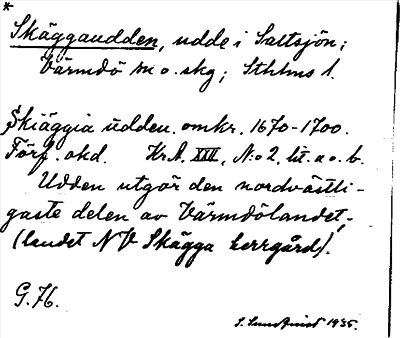 *
Skäggaudden, udde i Saltsjön;
Värmdö m o. skg; Sthlms l.
Skiäggia udden. omkr. 1670-1700.
Förf. okd. Kr.A. XXII, N:o 2, lit. a o. b.
Udden utgör den nordvästli-
gaste delen av Värmdölandet,
(landet NV Skägga herrgård).
G. 76.
S. Sundqvist 1935.